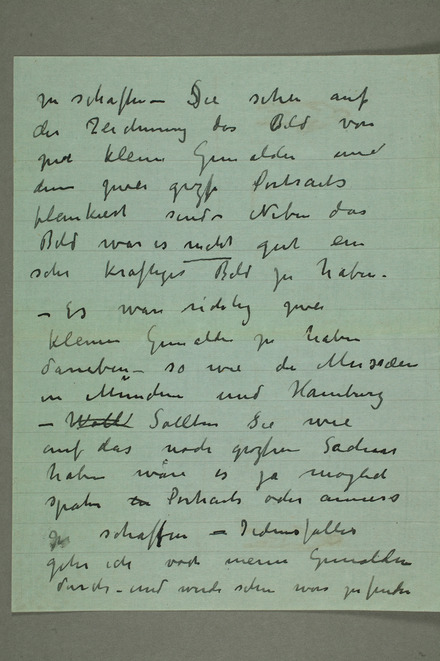 zu schaffen – Sie sehen auf
der Zeichnung das Bild von
zwei kleinen Gemalden und
dann zwei große Portraits
flankiert sind. Neben das
Bild war es nicht gut ein
sehr kraftiges Bild zu haben.
– Es war richtig zwei
kleinen Gemalden zu haben
daneben – so wie die Museen
in München und Hamburg
– Sollten Sie wie
auf das noch großen
haben wäre es ja moglich
spater Portraits oder anderes
zu schaffen – Jedenfalls
gehe ich noch meine Gemalden
durch – und werde sehen was zu finden